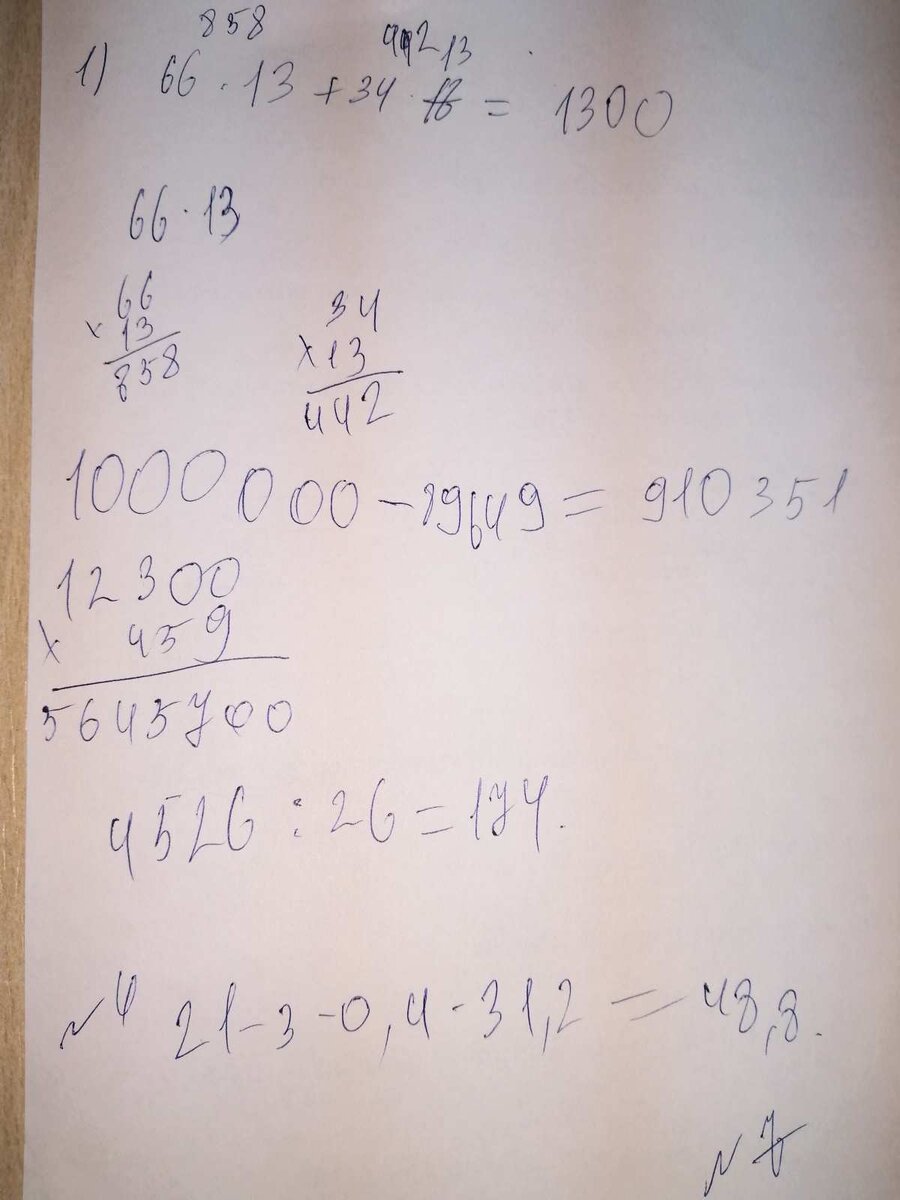 858 442 13
1) 66 · 13 + 34 · = 1300
66 · 13
66
× 13
858
34
× 13
442
1000 000 - 89649 = 910 351
12300
× 459
5645700
4526 : 26 = 174.
№4 21 - 3 - 0,4 - 31,2 = 48,8.
№7